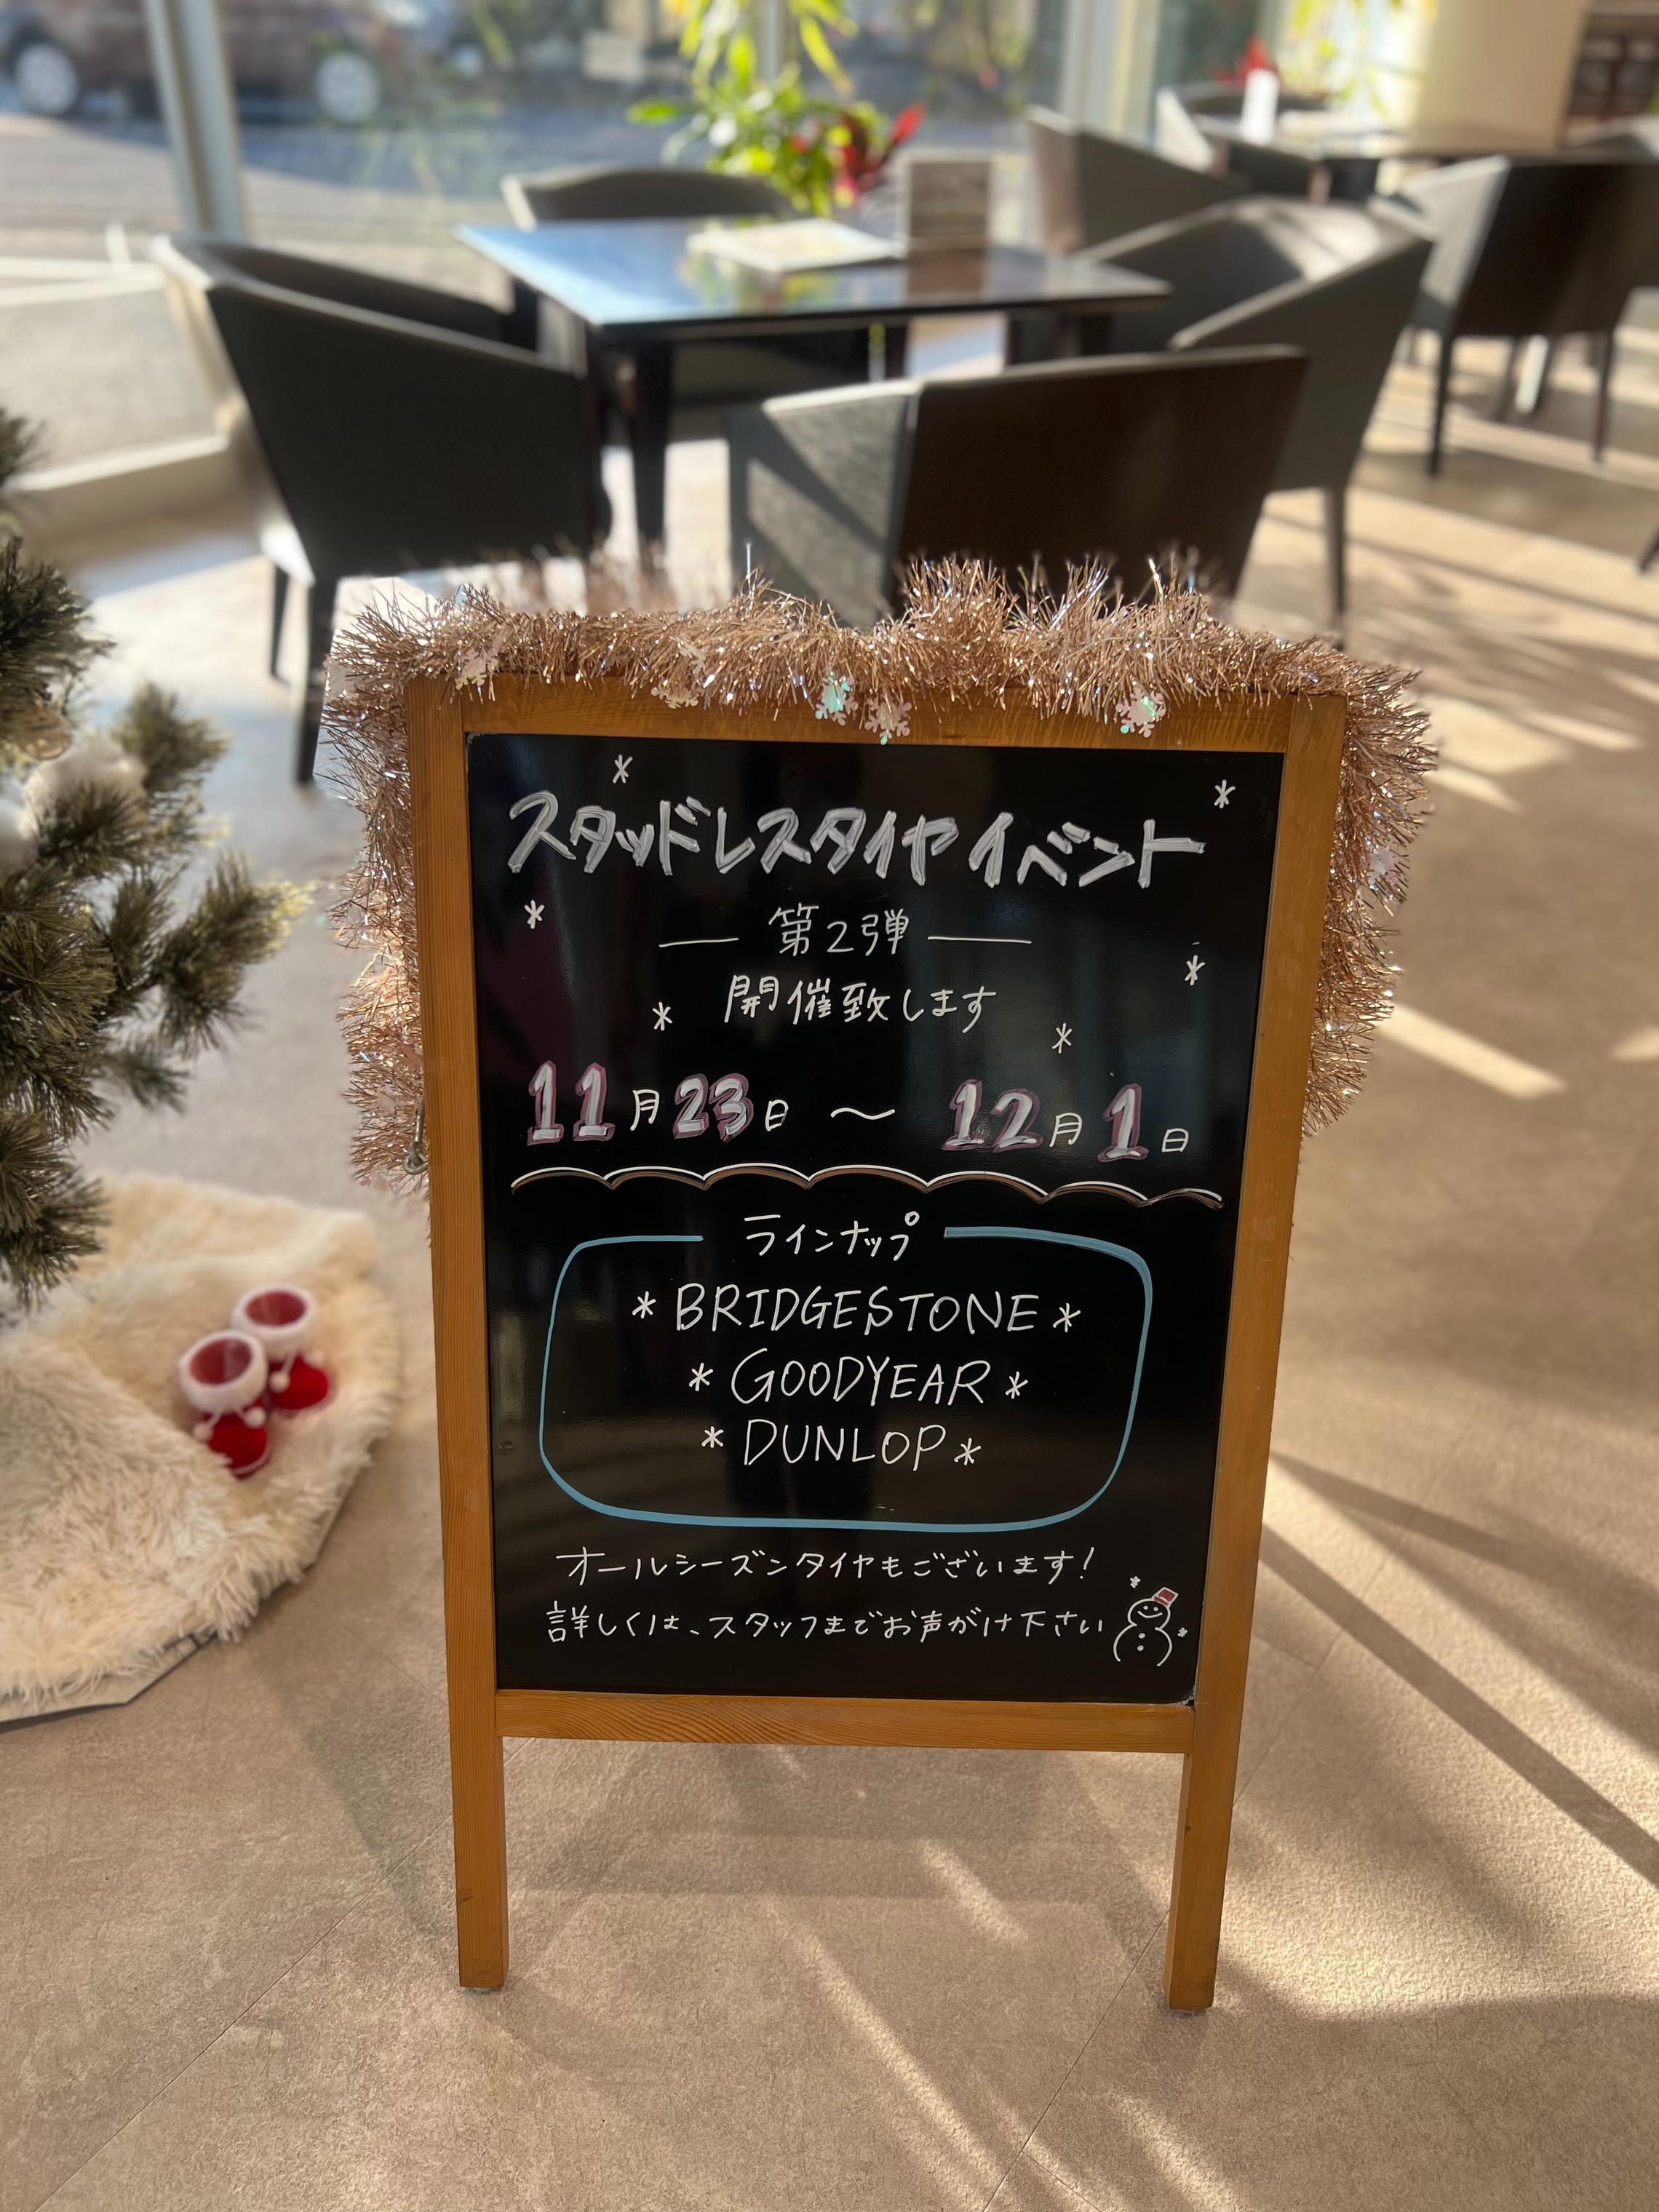 スタッドレスタイヤイベント
第2弾
開催致します
11月23日 〜 12月1日
ラインナップ
* BRIDGESTONE *
* GOODYEAR *
* DUNLOP *
オールシーズンタイヤもございます!
詳しくは、スタッフまでお声がけ下さい